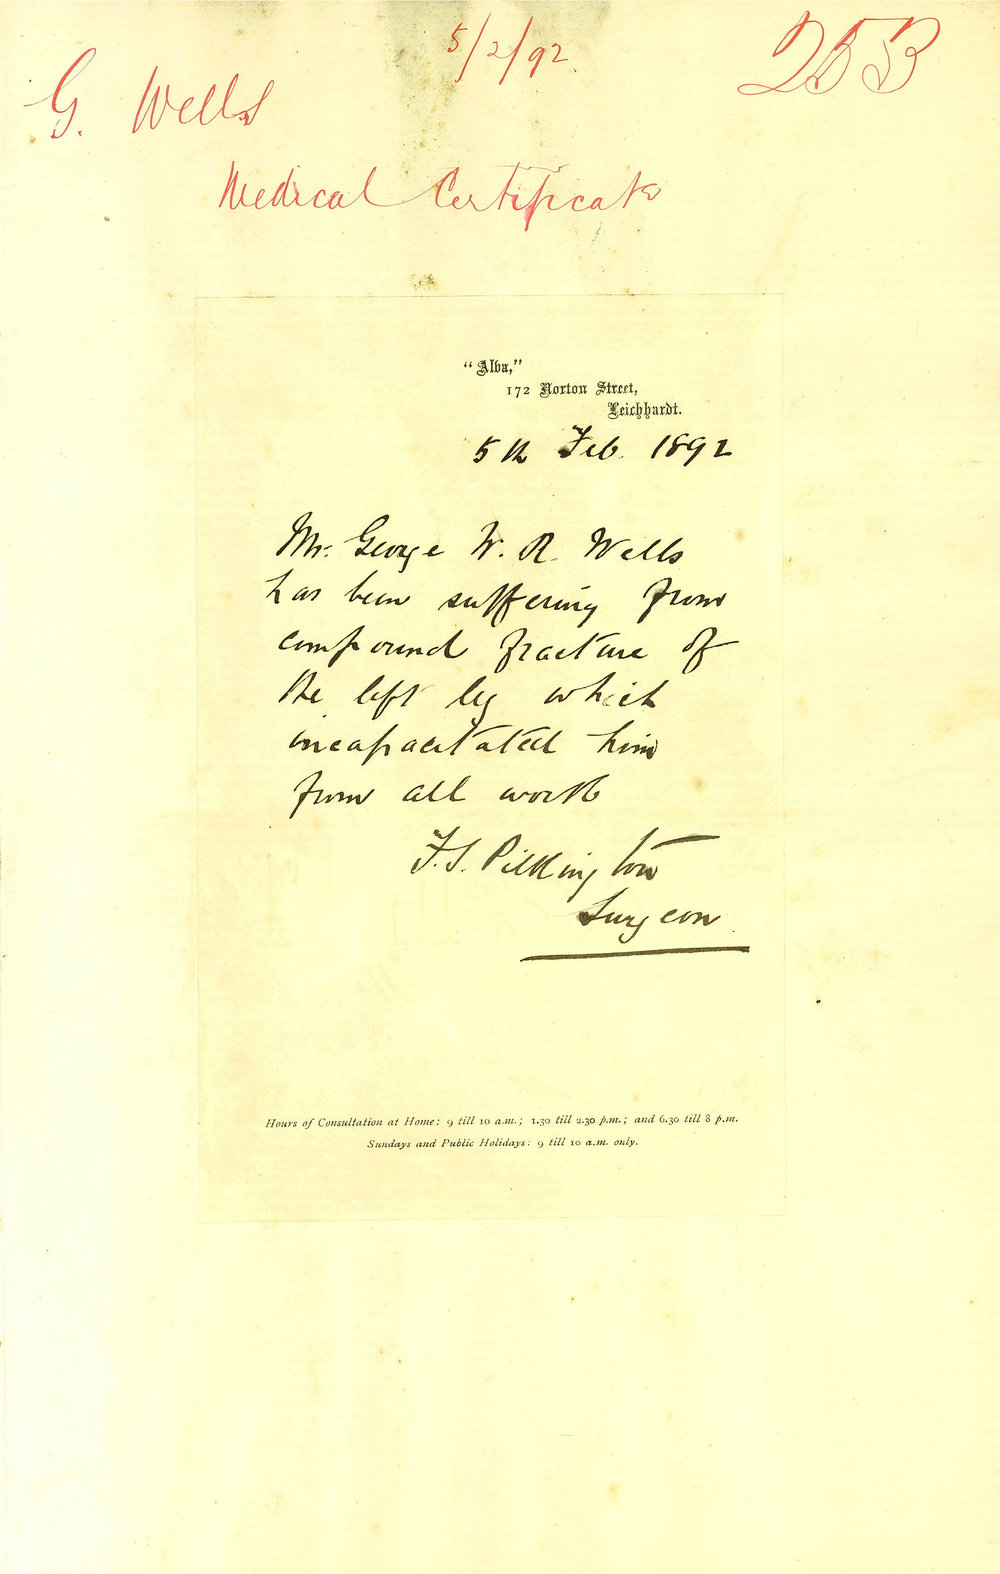 5/2/92.
253
G. Wells
Medical Certificate
"Alba,"
172 Norton Street,
Leichhardt.
5th Feb. 1892
Mr. George W. R. Wells
has been suffering from
compound fracture of
the left leg which
incapacitated him
from all work
F.S. Pilkington
Surgeon.
Hours of Consultation at Home: 9 till 10 a.m.; 1.30 till 2.30 p.m.; and 6.30 till 8 p.m.
Sundays and Public Holidays: 9 till 10 a.m. only.